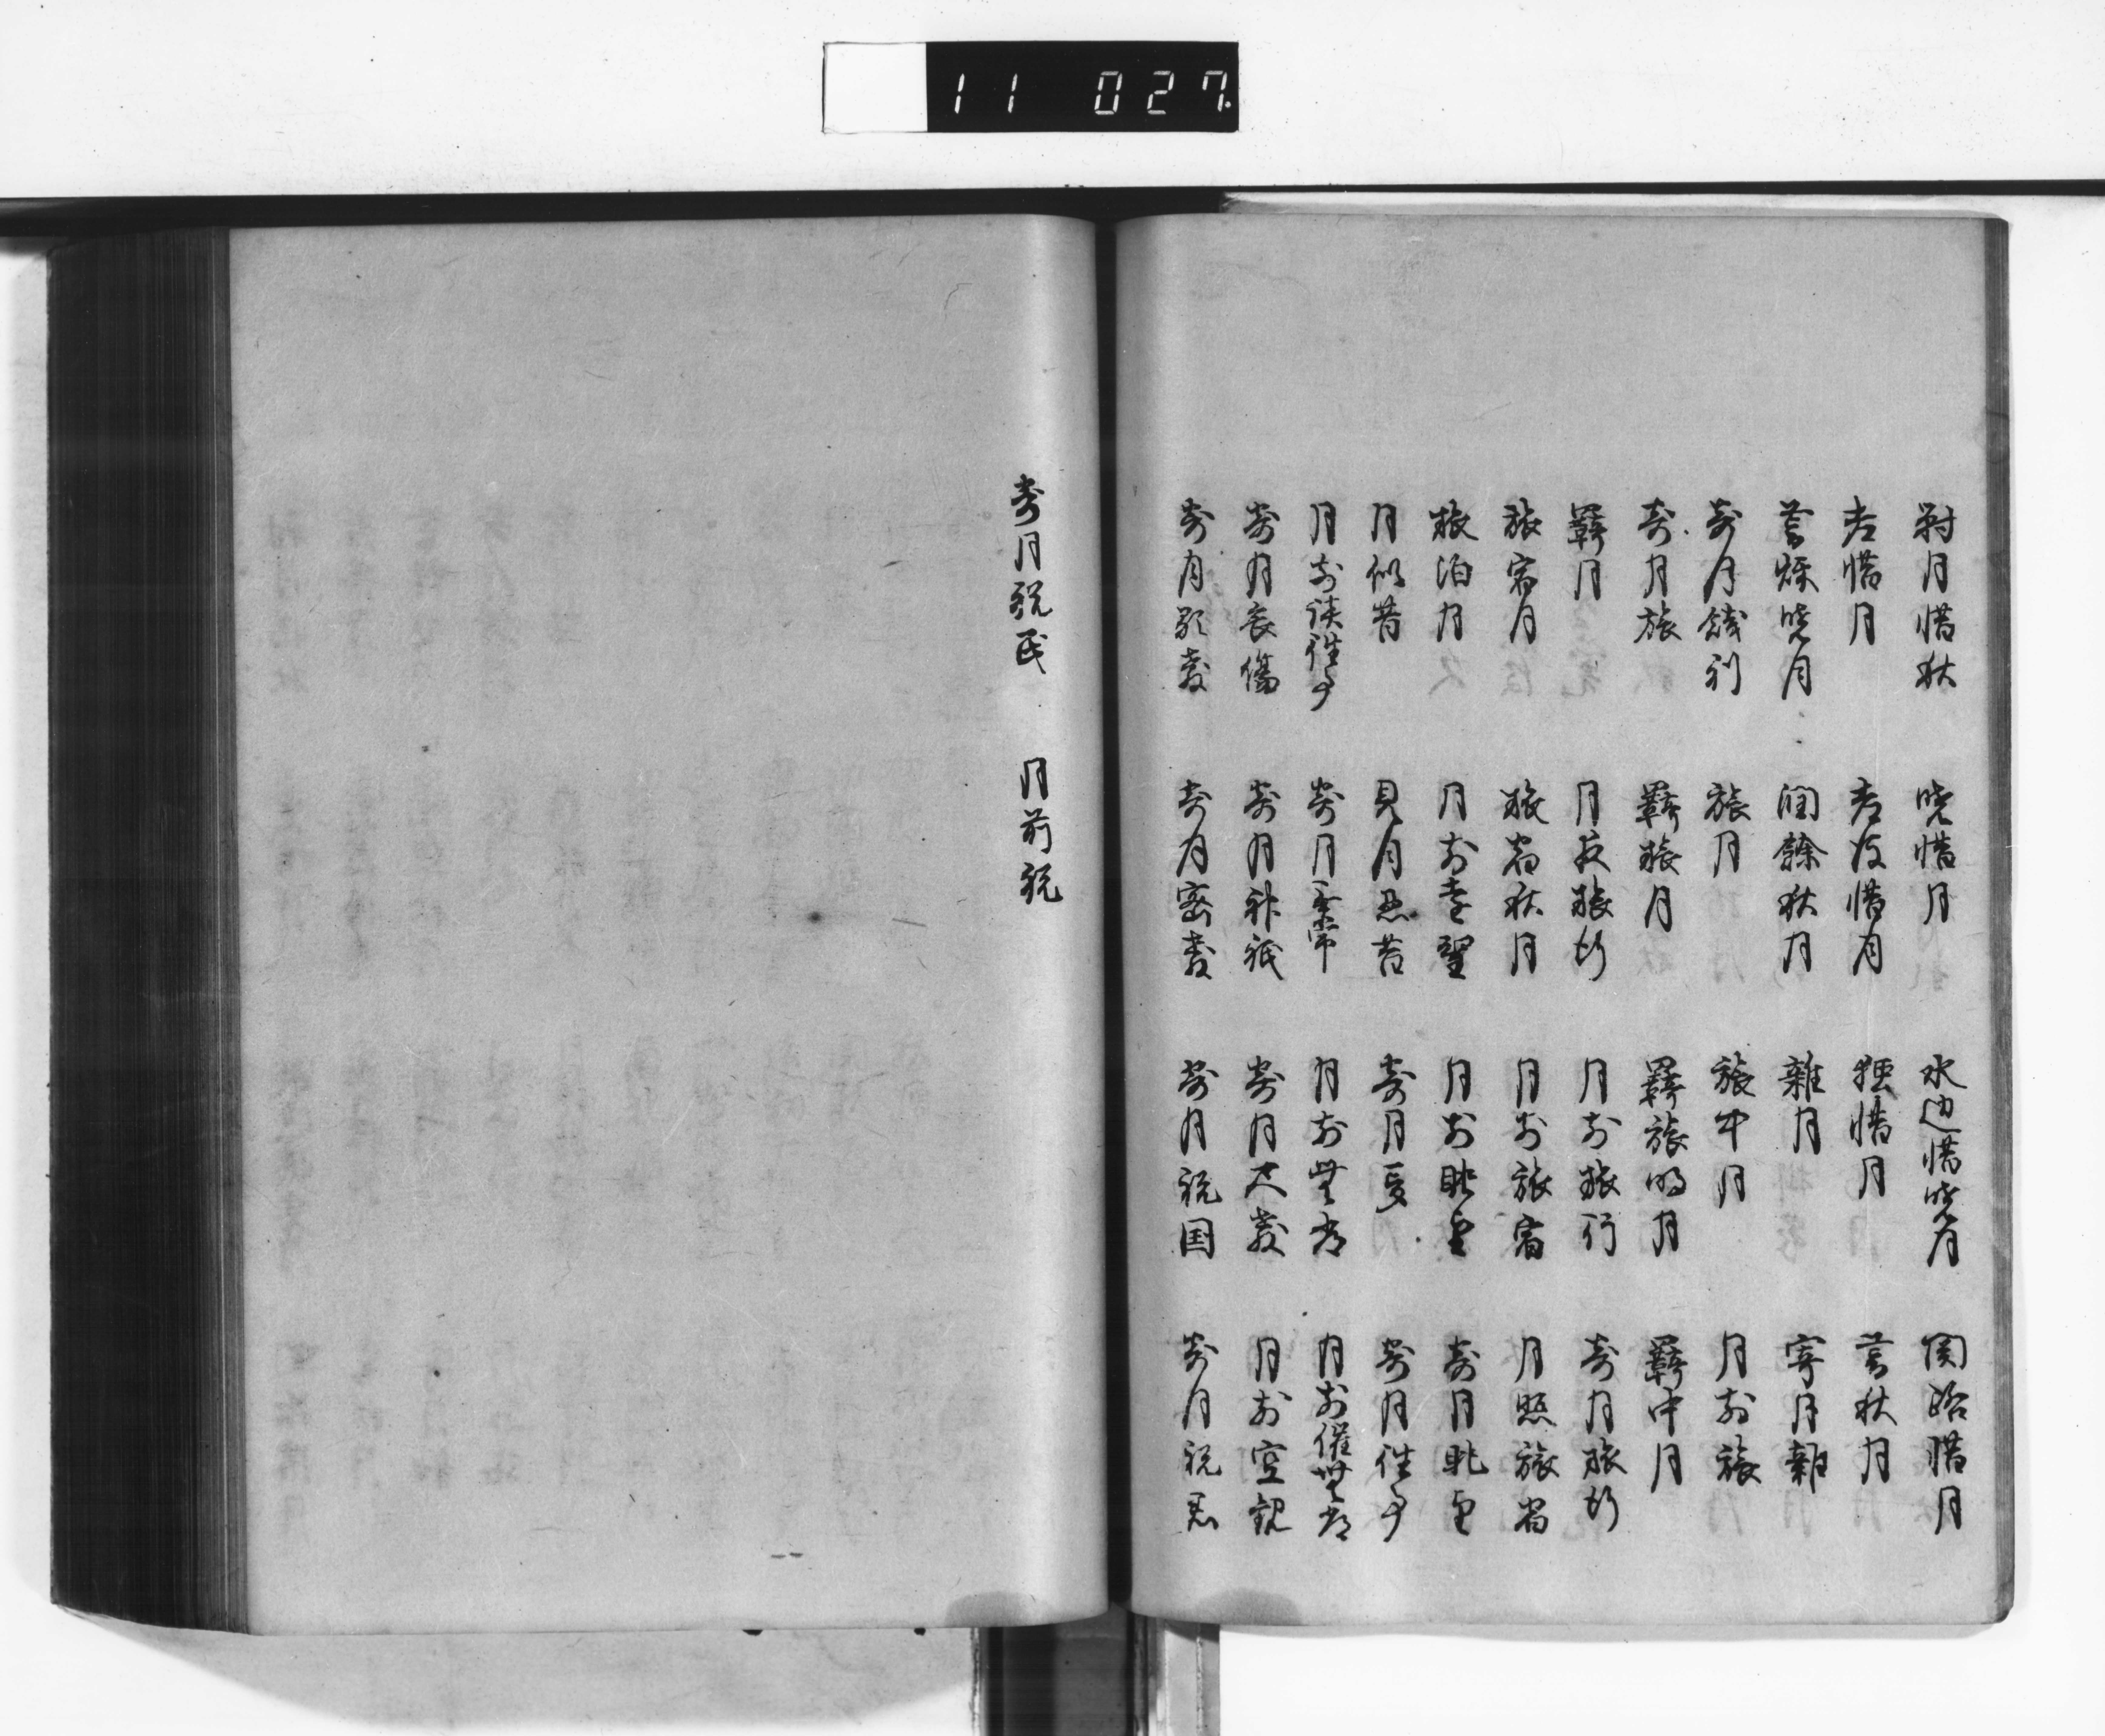 11 027
対月惜秋 暁惜月 水辺惜暁月 関路惜月
老惜月 老後惜月 独惜月 暮秋月
暮秋暁月 閏餘秋月 雑月 寄月雑
寄月餞別 旅月 旅中月 月前旅
寄月旅 羇旅月 羇旅明月 羇中月
羇月 月夜旅行 月前旅行 寄月旅行
旅宿月 旅宿秋月 月前旅宿 月照旅宿
旅泊月 月前遠望 月前眺望 寄月眺望
月似昔 見月思昔 寄月夏 寄月往事
月前談往事 寄月無常 月前無常 月前催無常
寄月哀傷 寄月神祇 寄月尺教 月前空観
寄月顕教 寄月密教 寄月祝国 寄月祝君
寄月祝民 月前祝